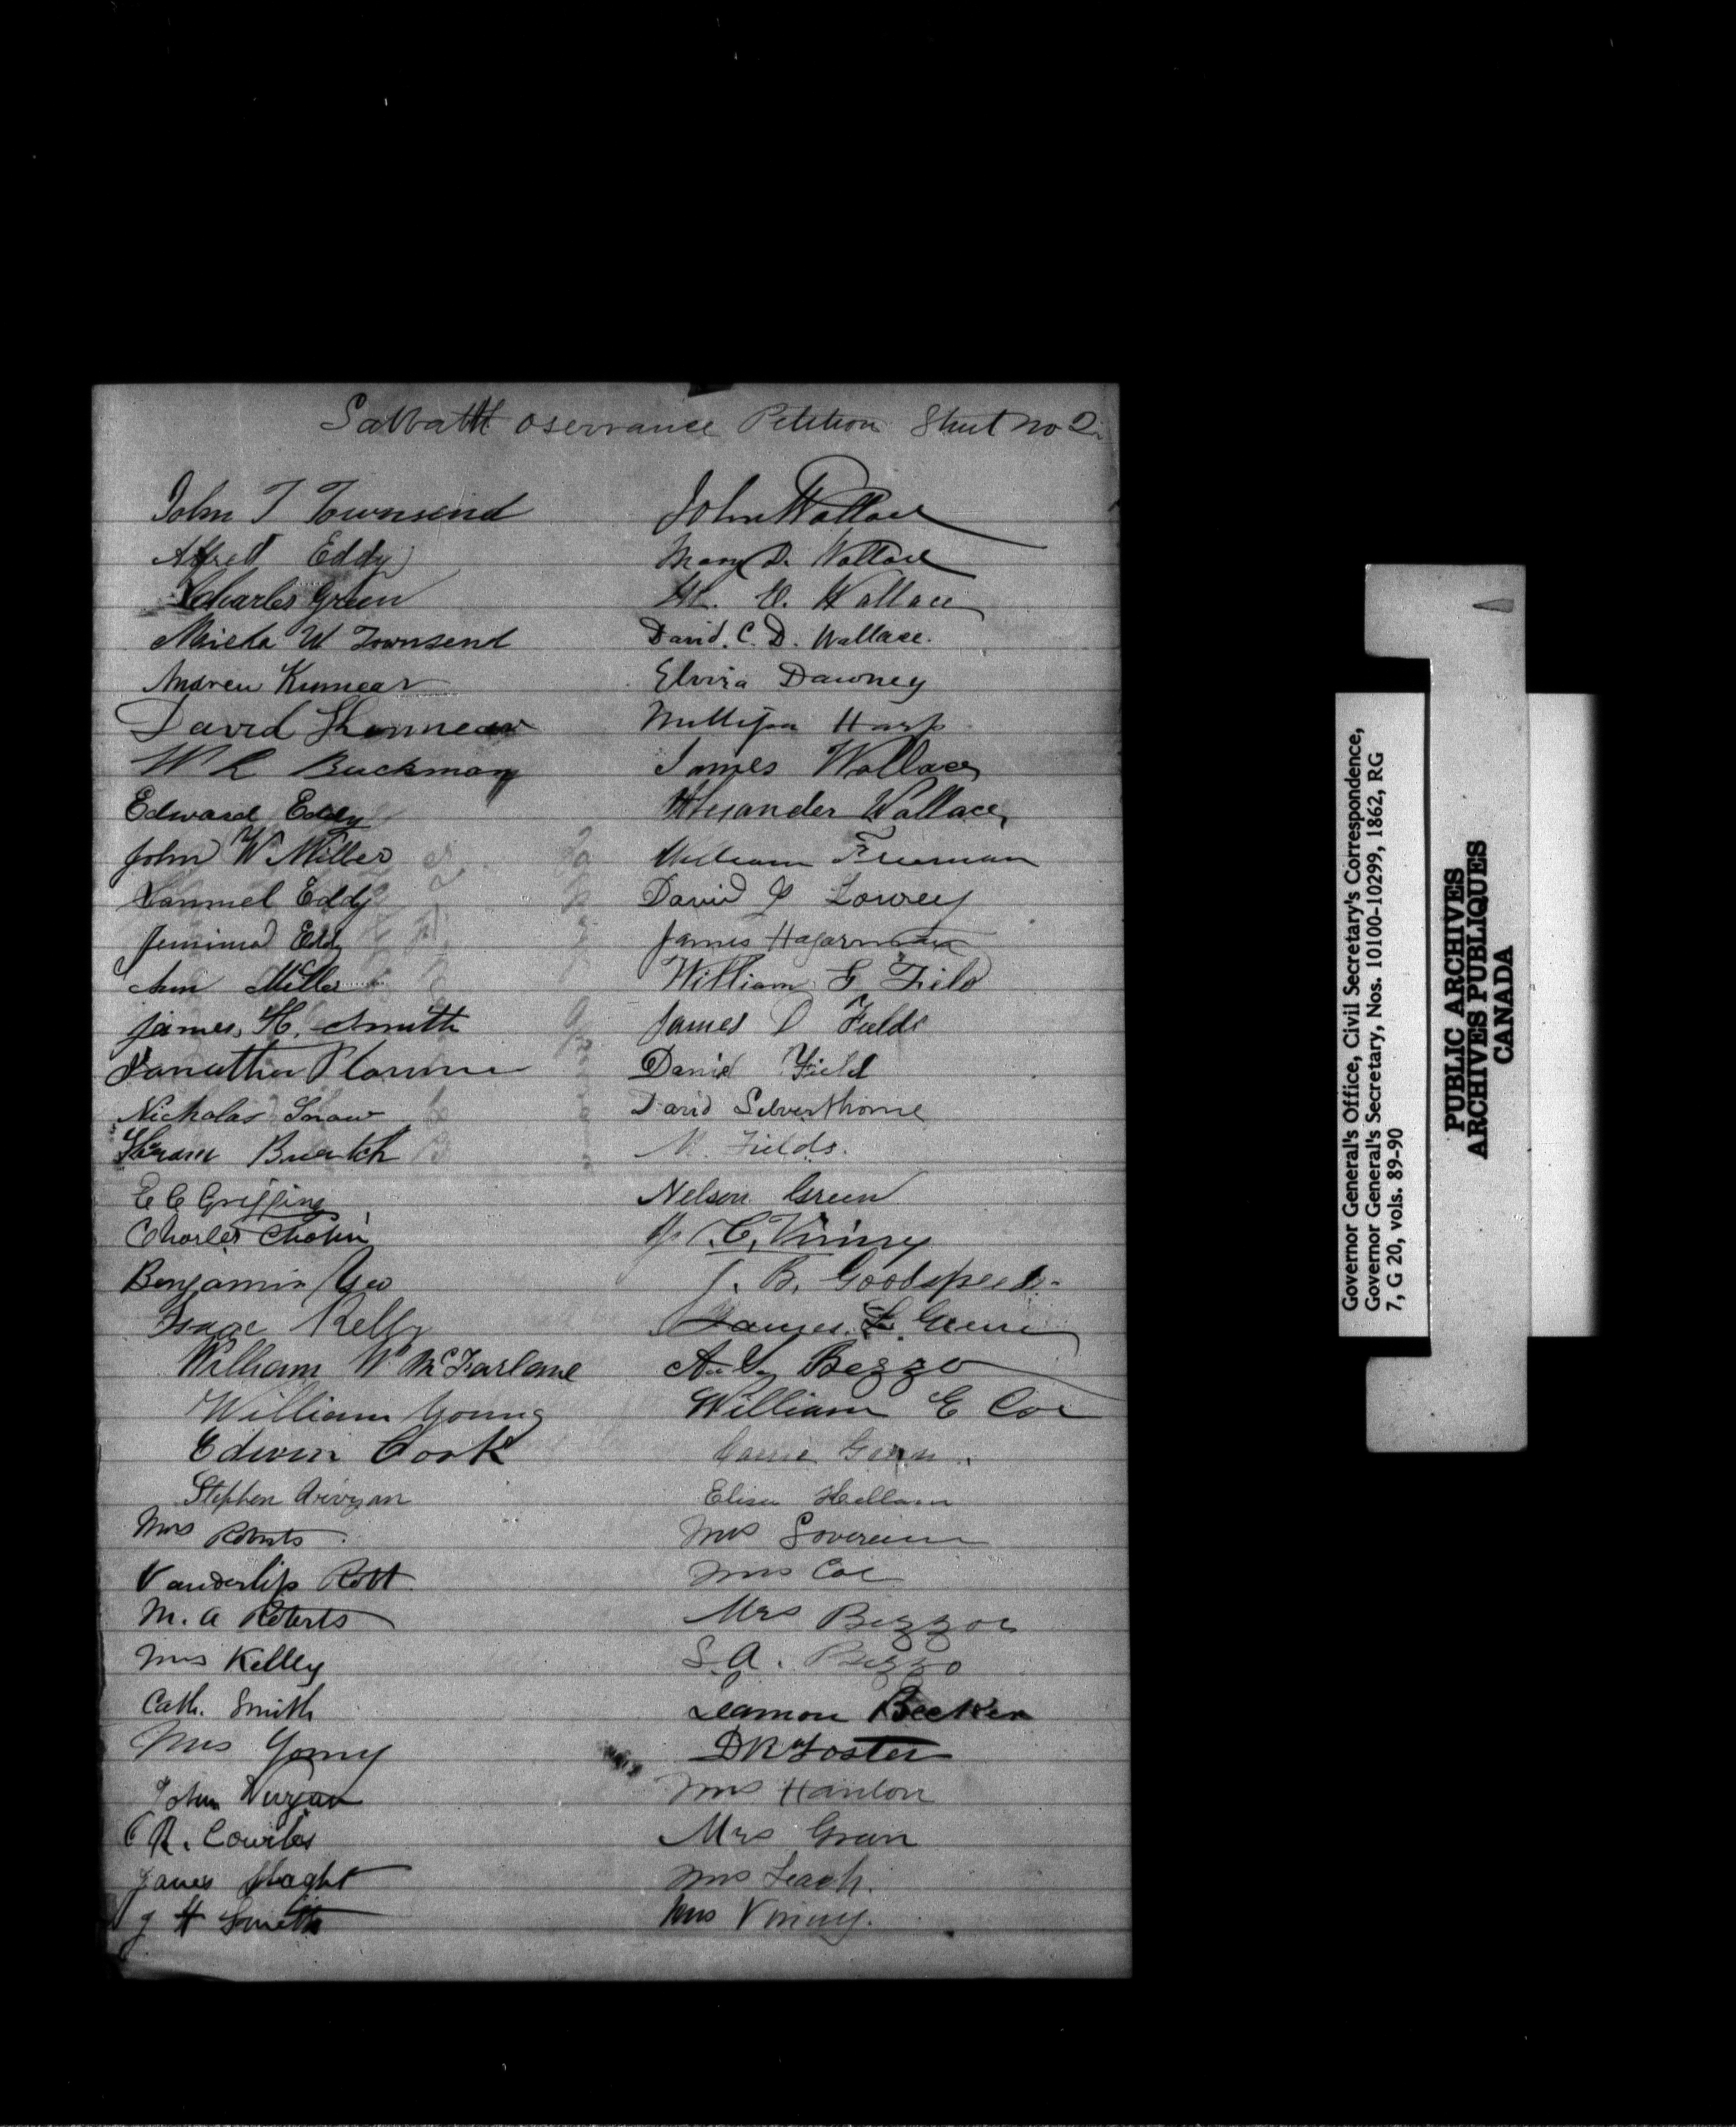 Sabbath Oservance Petition Sheet No 2
John T Townsend
Alfred Eddy
Charles Green
W Townsend
Andrew Kinnear
David Kinnear
W R Buckman
Edward Eddy
John W Miller
Samuel Eddy
Jemima Eddy
Ann Miller
James H. Smith
Nicholas Snow
E C Griffing
Charles
Benjamin Yeo
Isaac Kelly
William W McFarlane
William Young
Edwin Cook
Stephen
Mrs Roberts
Vanderlip Robt
M. A Roberts
Mrs Kelley
Cath. Smith
Mrs Young
John
R.
James Slaght
J H Smith
John Wallace
Mary D. Wallace
Wallace
David. C. D. Wallace.
Elvira Dawney
Harp
James Wallace
Alexander Wallace
William Freeman
David Lowrey
James Hagarman
William G Field
James D Fields
Daniel Field
David Silverthorne
M. Fields.
Nelson Green
C. Vining
J. B. Goodspeed.
James L. Green
Bezzo
William E Coe
Green
Eliza
Mrs Sovereign
Mrs Coe
Mrs Bezzoe
S. A. Bezzo
Leamon Becker
D R Foster
Mrs Hanlon
Mrs Green
Mrs Leach.
Mrs Vining.
Governor General's Office, Civil Secretary's Correspondence,
Governor General's Secretary, Nos. 10100-10299, 1862, RG
7, G 20, vols. 89-90
PUBLIC ARCHIVES
ARCHIVES PUBLIQUES
CANADA